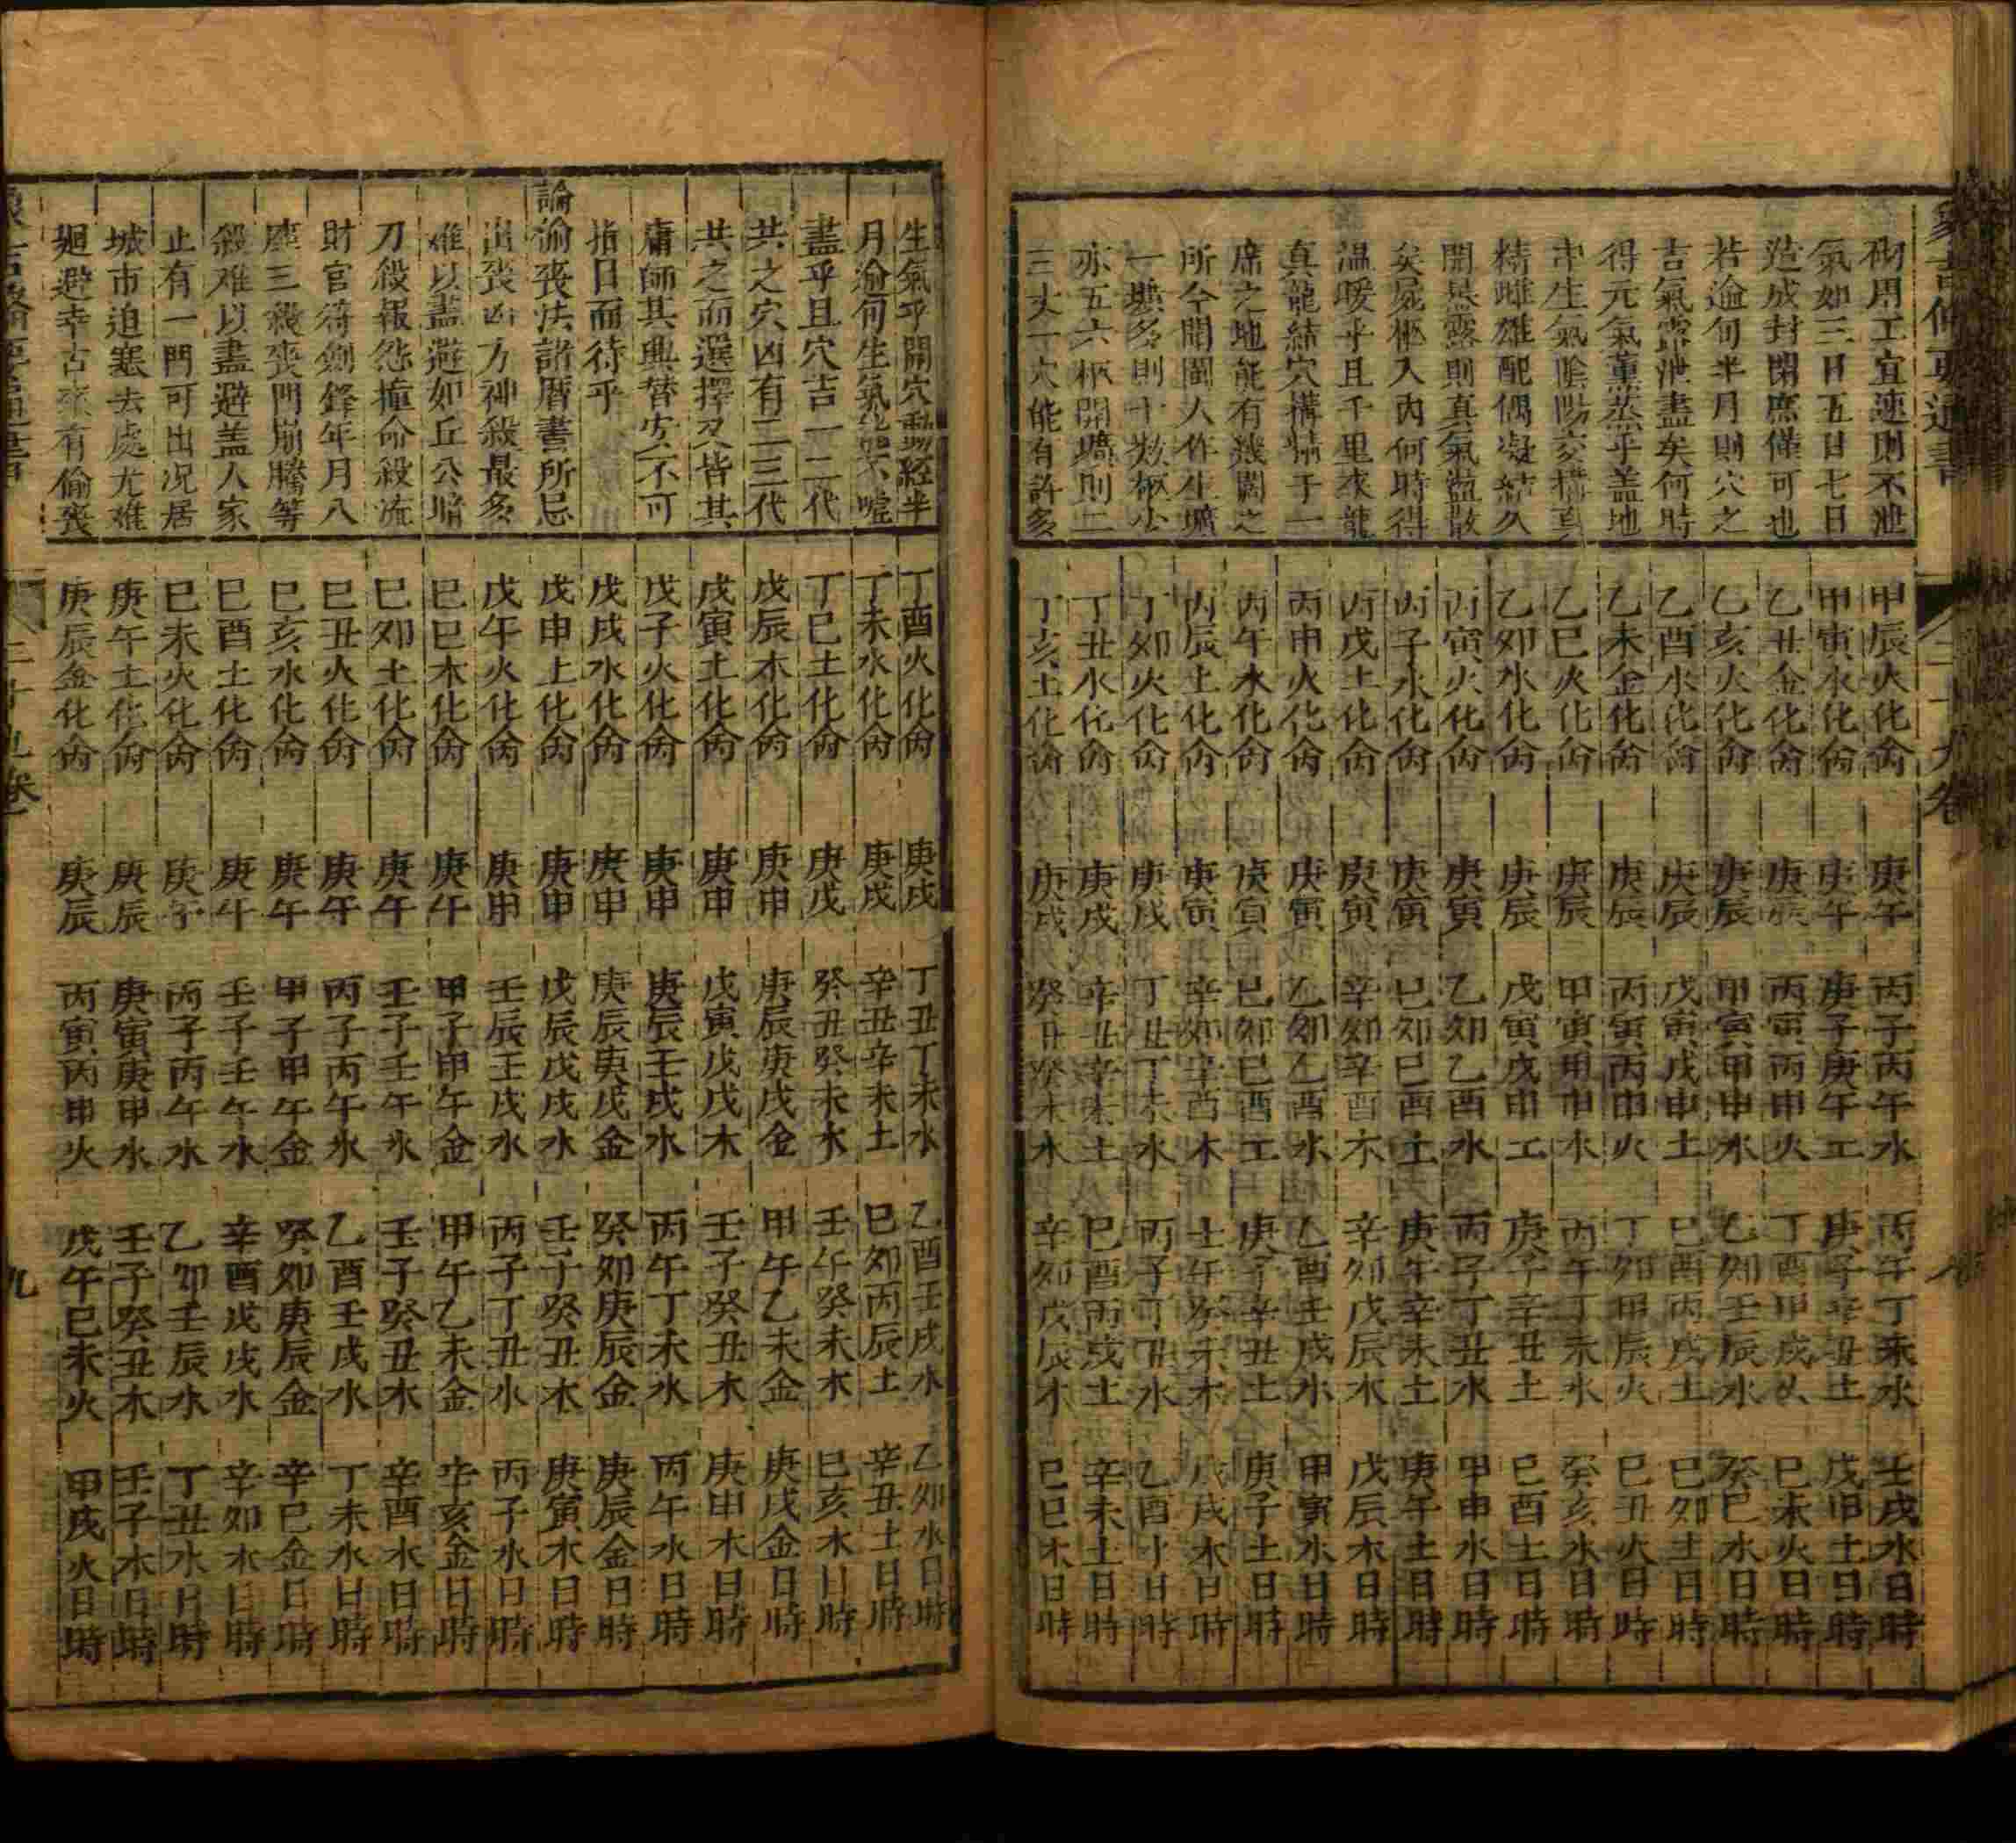 象吉備要通書
二十九卷
砌用工宜速則不泄
氣如三日五日七日
造成封閉庶僅可也
若逾旬半月則穴之
吉氣露泄盡矣何時
得元氣薰蒸乎盖地
中生氣陰陽交搆真
精雌雄配偶凝結久
開暴露則真氣溢散
矣屍柩入內何時得
温暖乎且千里來龍
真龍結穴搆精于一
席之地能有幾闊之
所今閩國人作生壙
一壙多則十数柩少
亦五六柩開壙則二
三丈一穴能有許多
甲辰火化命 庚午 丙子丙午水 丙午丁未水 壬戌水日時
甲寅水化命 庚午 庚子庚午工 庚子辛丑土 戊申土日時
乙丑金化命 庚辰 丙寅丙申火 丁酉甲戌火 巳未火日時
乙亥火化命 庚辰 甲寅甲申水 乙夘壬辰水 癸巳水日時
乙酉水化命 庚辰 戊寅戊申土 巳酉丙戌土 巳夘土日時
乙未金化命 庚辰 丙寅丙申火 丁夘甲辰火 巳丑火日時
乙巳火化命 庚辰 甲寅甲申水 丙午丁未水 癸亥水日時
乙夘水化命 庚辰 戊寅戊申工 庚子辛丑土 巳酉土日時
丙寅火化命 庚寅 乙夘乙酉水 丙子丁丑水 甲申水日時
丙子水化命 庚寅 巳夘巳酉土 庚午辛未土 庚午土日時
丙戌土化命 庚寅 辛夘辛酉木 辛夘戊辰木 戊辰木日時
丙申火化命 庚寅 乙夘乙酉水 乙酉壬戌水 甲寅水日時
丙午水化命 庚寅 巳夘巳酉工 庚子辛丑土 庚子土日時
丙辰土化命 庚寅 辛夘辛酉木 壬午癸未木 戊戌木日時
丁夘火化命 庚戌 丁丑丁未水 丙子丁丑水 乙酉水日時
丁丑水化命 庚戌 辛丑辛未土 巳酉丙戌土 辛未土日時
丁亥土化命 庚戌 癸丑癸未木 辛夘戊辰木 巳巳木日時
生氣乎開穴動經半
月逾旬生氣能不噓
盡乎且穴吉一二代
共之穴凶有二三代
共之而選擇又皆其
庸師其興替安不可
指日而待乎
論偷喪法諸曆書所忌
出喪凶方神殺最多
难以盡避如丘公暗
刀殺報怨撞命殺流
財官符劍鋒年月八
座三殺喪門崩騰等
殺难以盡避盖人家
止有一門可出况居
城市迫塞去處尤难
廻避幸古來有偷喪
丁酉火化命 庚戌 丁丑丁未水 乙酉壬戌水 乙夘水日時
丁未水化命 庚戌 辛丑辛未土 巳夘丙辰土 辛丑土日時
丁巳土化命 庚戌 癸丑癸未木 壬午癸未木 巳亥木日時
戊辰木化命 庚申 庚辰庚戌金 甲午乙未金 庚戌金日時
戊寅土化命 庚申 戊寅戊戌木 壬子癸丑木 庚申木日時
戊子火化命 庚申 庚辰壬戌水 丙午丁未水 丙午水日時
戊戌水化命 庚申 庚辰庚戌金 癸夘庚辰金 庚辰金日時
戊申土化命 庚申 戊辰戊戌木 壬子癸丑木 庚寅木日時
戊午火化命 庚申 壬辰壬戌水 丙子丁丑水 丙子水日時
巳巳木化命 庚午 甲子甲午金 甲午乙未金 辛亥金日時
巳夘土化命 庚午 壬子壬午木 壬子癸丑木 辛酉木日時
巳丑火化命 庚午 丙子丙午水 乙酉壬戌水 丁未水日時
巳亥水化命 庚午 甲子甲午金 癸夘庚辰金 辛巳金日時
巳酉土化命 庚午 壬子壬午水 辛酉戊戌水 辛夘木日時
巳未火化命 庚子 丙子丙午水 乙夘壬辰水 丁丑水日時
庚午土化命 庚辰 庚寅庚申水 壬子癸丑木 壬子木日時
庚辰金化命 庚辰 丙寅丙申火 戊午巳未火 甲戌火日時
二十九卷
九